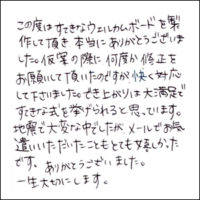 この度はすてきなウェルカムボードを製
作して頂き本当にありがとうございまし
た。仮案の際に何度か修正を
お願いして頂いたのですが快く対応
して下さいました。でき上がりは大満足で
すてきな式を挙げられると思っています。
地震で大変な中でしたがメールでお気
遣いいただいたこともとても嬉しかった
です。ありがとうございました。
一生大切にします。